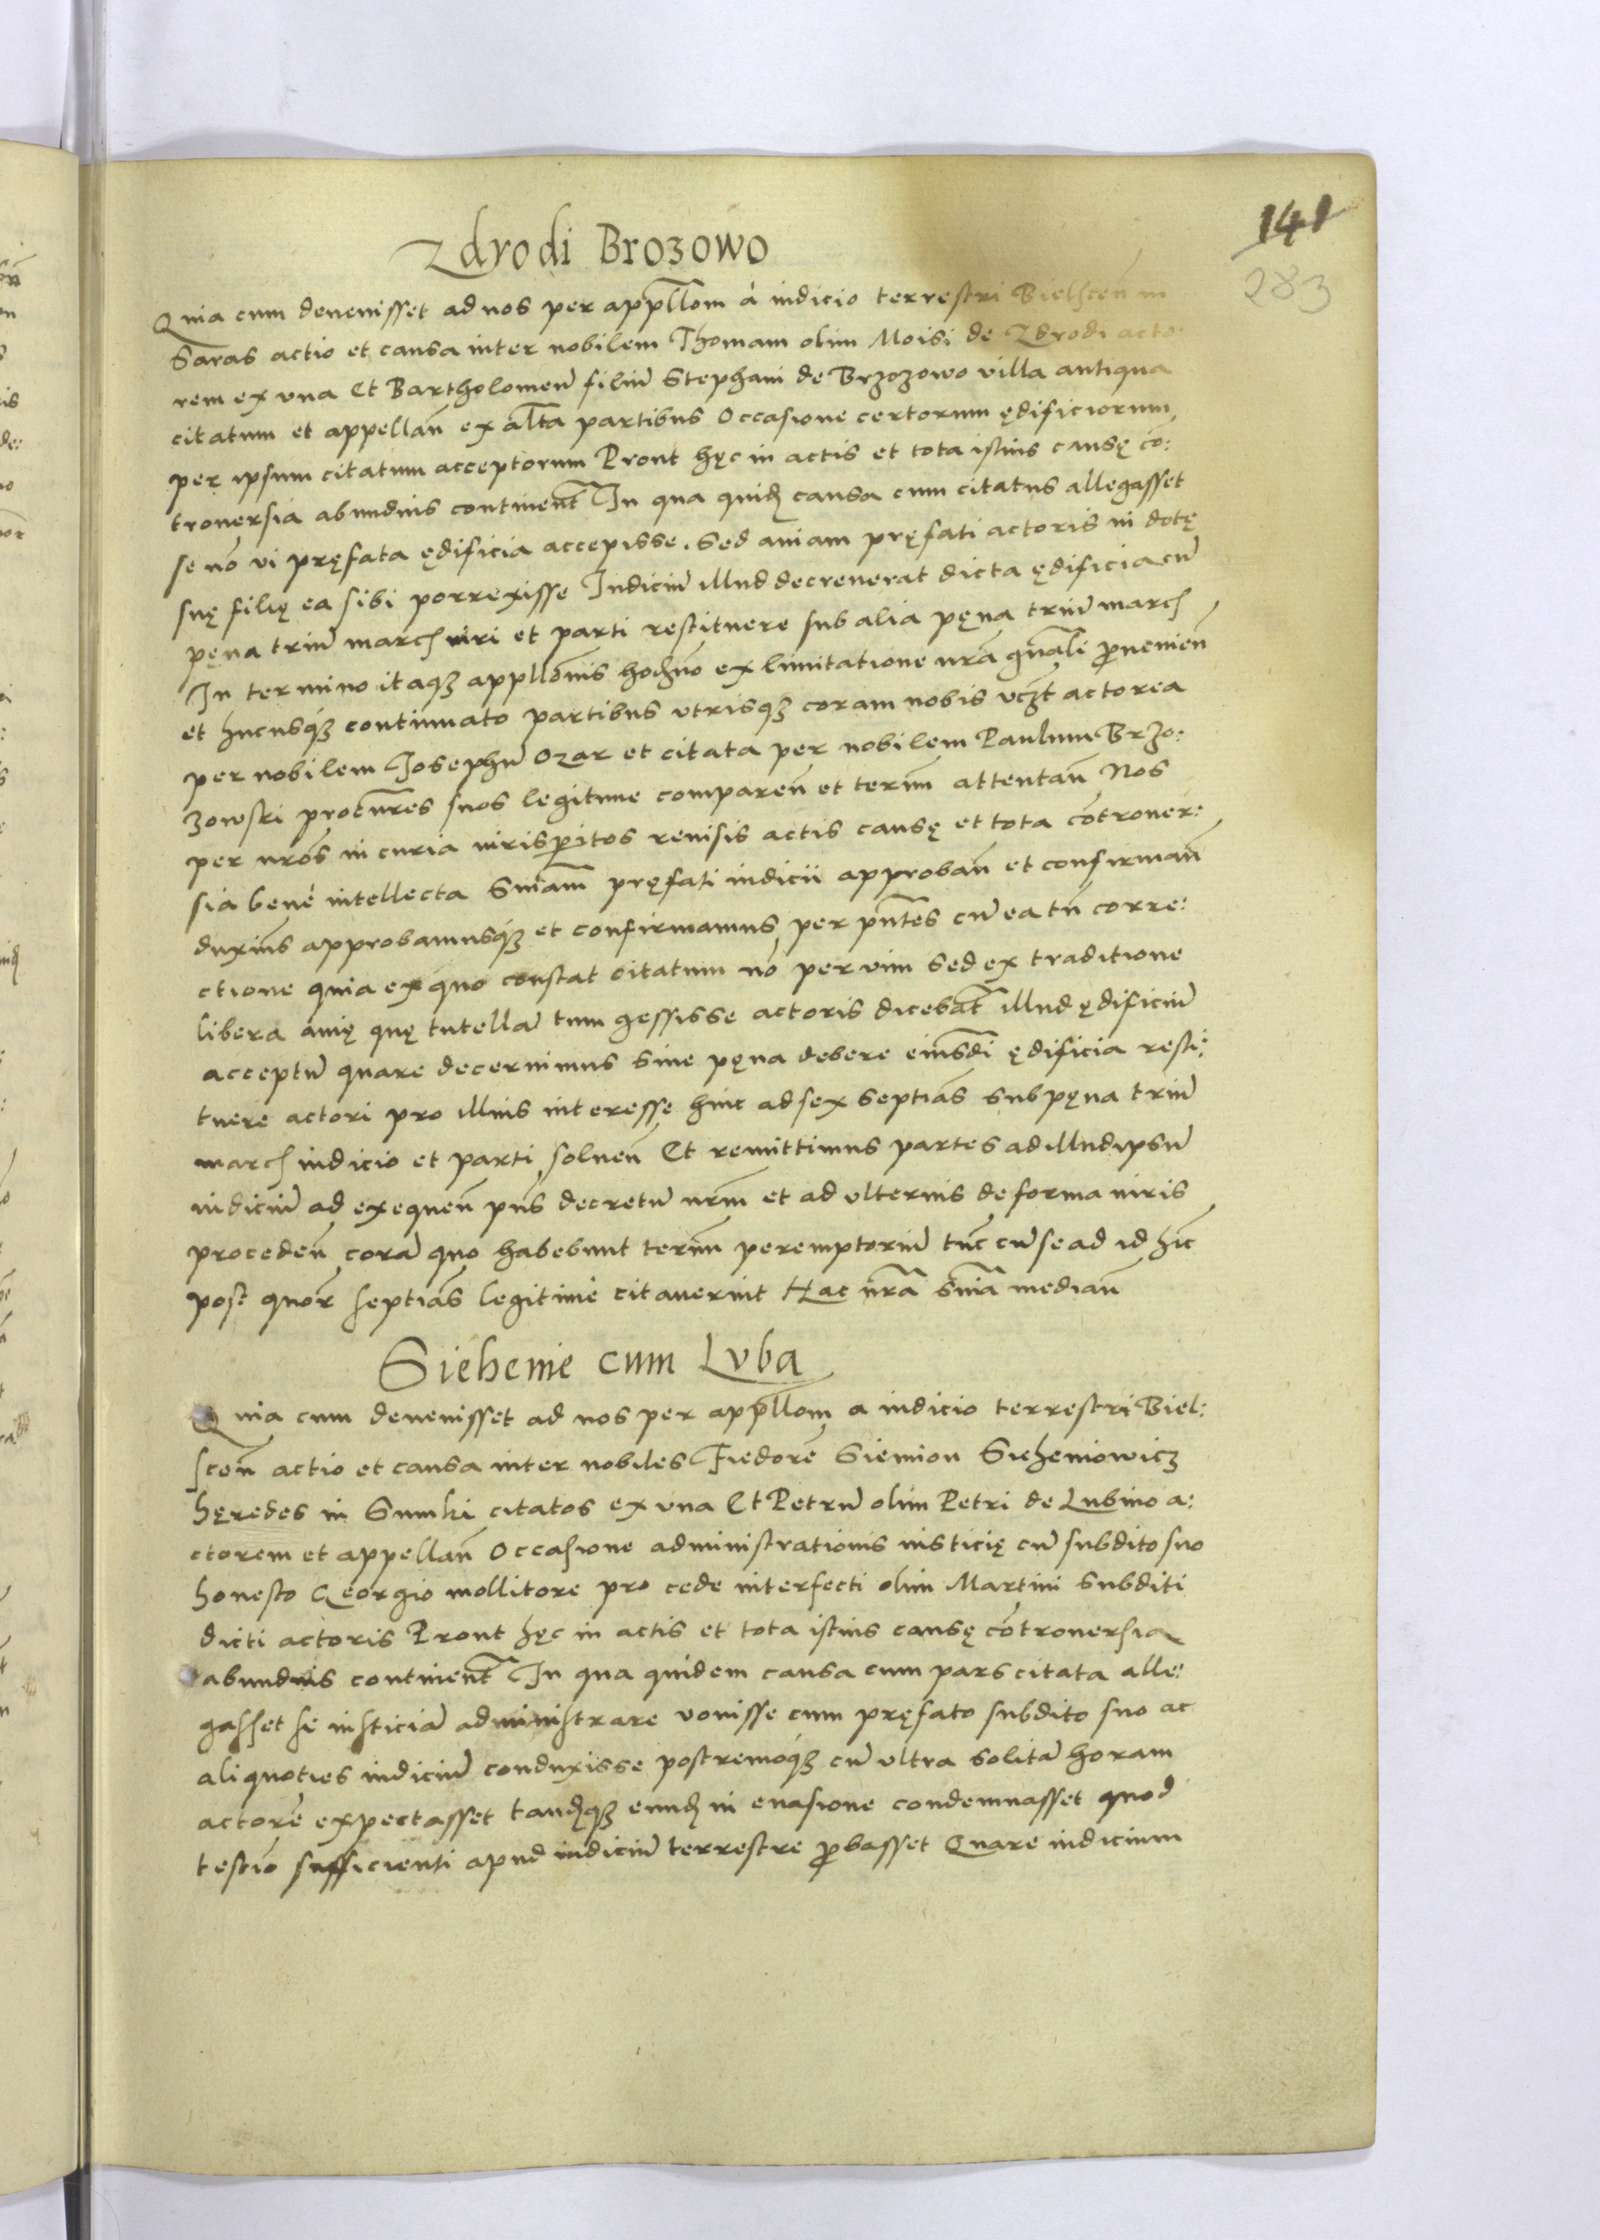 141
283
Zdrodi Brozowo
Quia cum devenisset ad nos per appllom à iudicio terrestri Bielscen̄ in
Saras actio et causa inter nobilem Thomam olim Moisi de Zdrodi acto
rem ex una Et Bartholomeū filiū Stephani de Brzozowo villa antiqua
citatum et appellan̄ ex alta partibus Occasione certorum ędificiorum
per ipsum citatum acceptorum Prout hęc in actis et tota istius causę cō:
troversia abundius continent̄ In qua quid causa cum citatus allegasset
se nō vi pręfata ędificia accepisse. Sed aviam pręfati actoris in dotę
suę filię ea sibi porrexisse Iudiciū illud decreverat dicta ędificia cū
pęna triū march iuri et parti restituere sub alia pęna triū march
In termino itaqz appllōnis hodno ex limitatione nrā gnāli provenien̄
et hucusqz continuato partibus utrisqz coram nobis vczt actorea
per nobilem Iosephū Ozar et citata per nobilem Paulum Brzo:
zowski procures suos legitime comparen̄ et termi attentan̄ Nos
per nros in curia iurisperitos revisis actis causę et tota cōtrover:
sia benè intellecta Sniam pręfati iudicii approban̄ et confirman̄
duxim̄s approbamusqz et confirmamus per pntes cū ea tn̄ corre:
ctione quia ex quo constat citatum nō per vim sed ex traditione
libera avię quę tutellā tum gessisse actoris dicebat̄ illud ędificiū
acceptū quare decernimus sine pęna debere eiusdi ędificia resti:
tuere actori pro illius interesse hinc ad sex septiās sub pęna triū
march iudicio et parti solven̄ Et remittimus partes ad illud ipsū
iudiciū ad exequen̄ pn̄s decretū nrm̄ et ad ulterius de forma iuris
proceden̄ corā quo habebunt termi peremptoriū tūc cū se ad id hic
post quor̄ septiās legitimè citaverint Hac nrā snia median̄
Siehenie cum Luba
Quia cum devenisset ad nos per appllom a iudicio terrestri Biel:
scen̄ actio et causa inter nobiles Fiedorē Siemion Sieheniowicz
hęredes in Sumki citatos ex una Et Petrū olim Petri de Lubino a:
ctorem et appellan̄ Occasione administrationis iusticię cū subdito suo
honesto Georgio mollitore pro cede interfecti olim Martini subditi
dicti actoris Prout hęc in actis et tota istius causę cōtroversia
abundius continent̄ In qua quidem causa cum pars citata alle:
gasset se iusticiā administrare vovisse cum pręfato subdito suo ac
aliquoties iudiciū conduxisse postremoqz cū ultra solitā horam
actorē expectasset tandqz eund in evasione condemnasset quod
testio sufficienti apud iudiciū terrestre probasset Quare iudicium